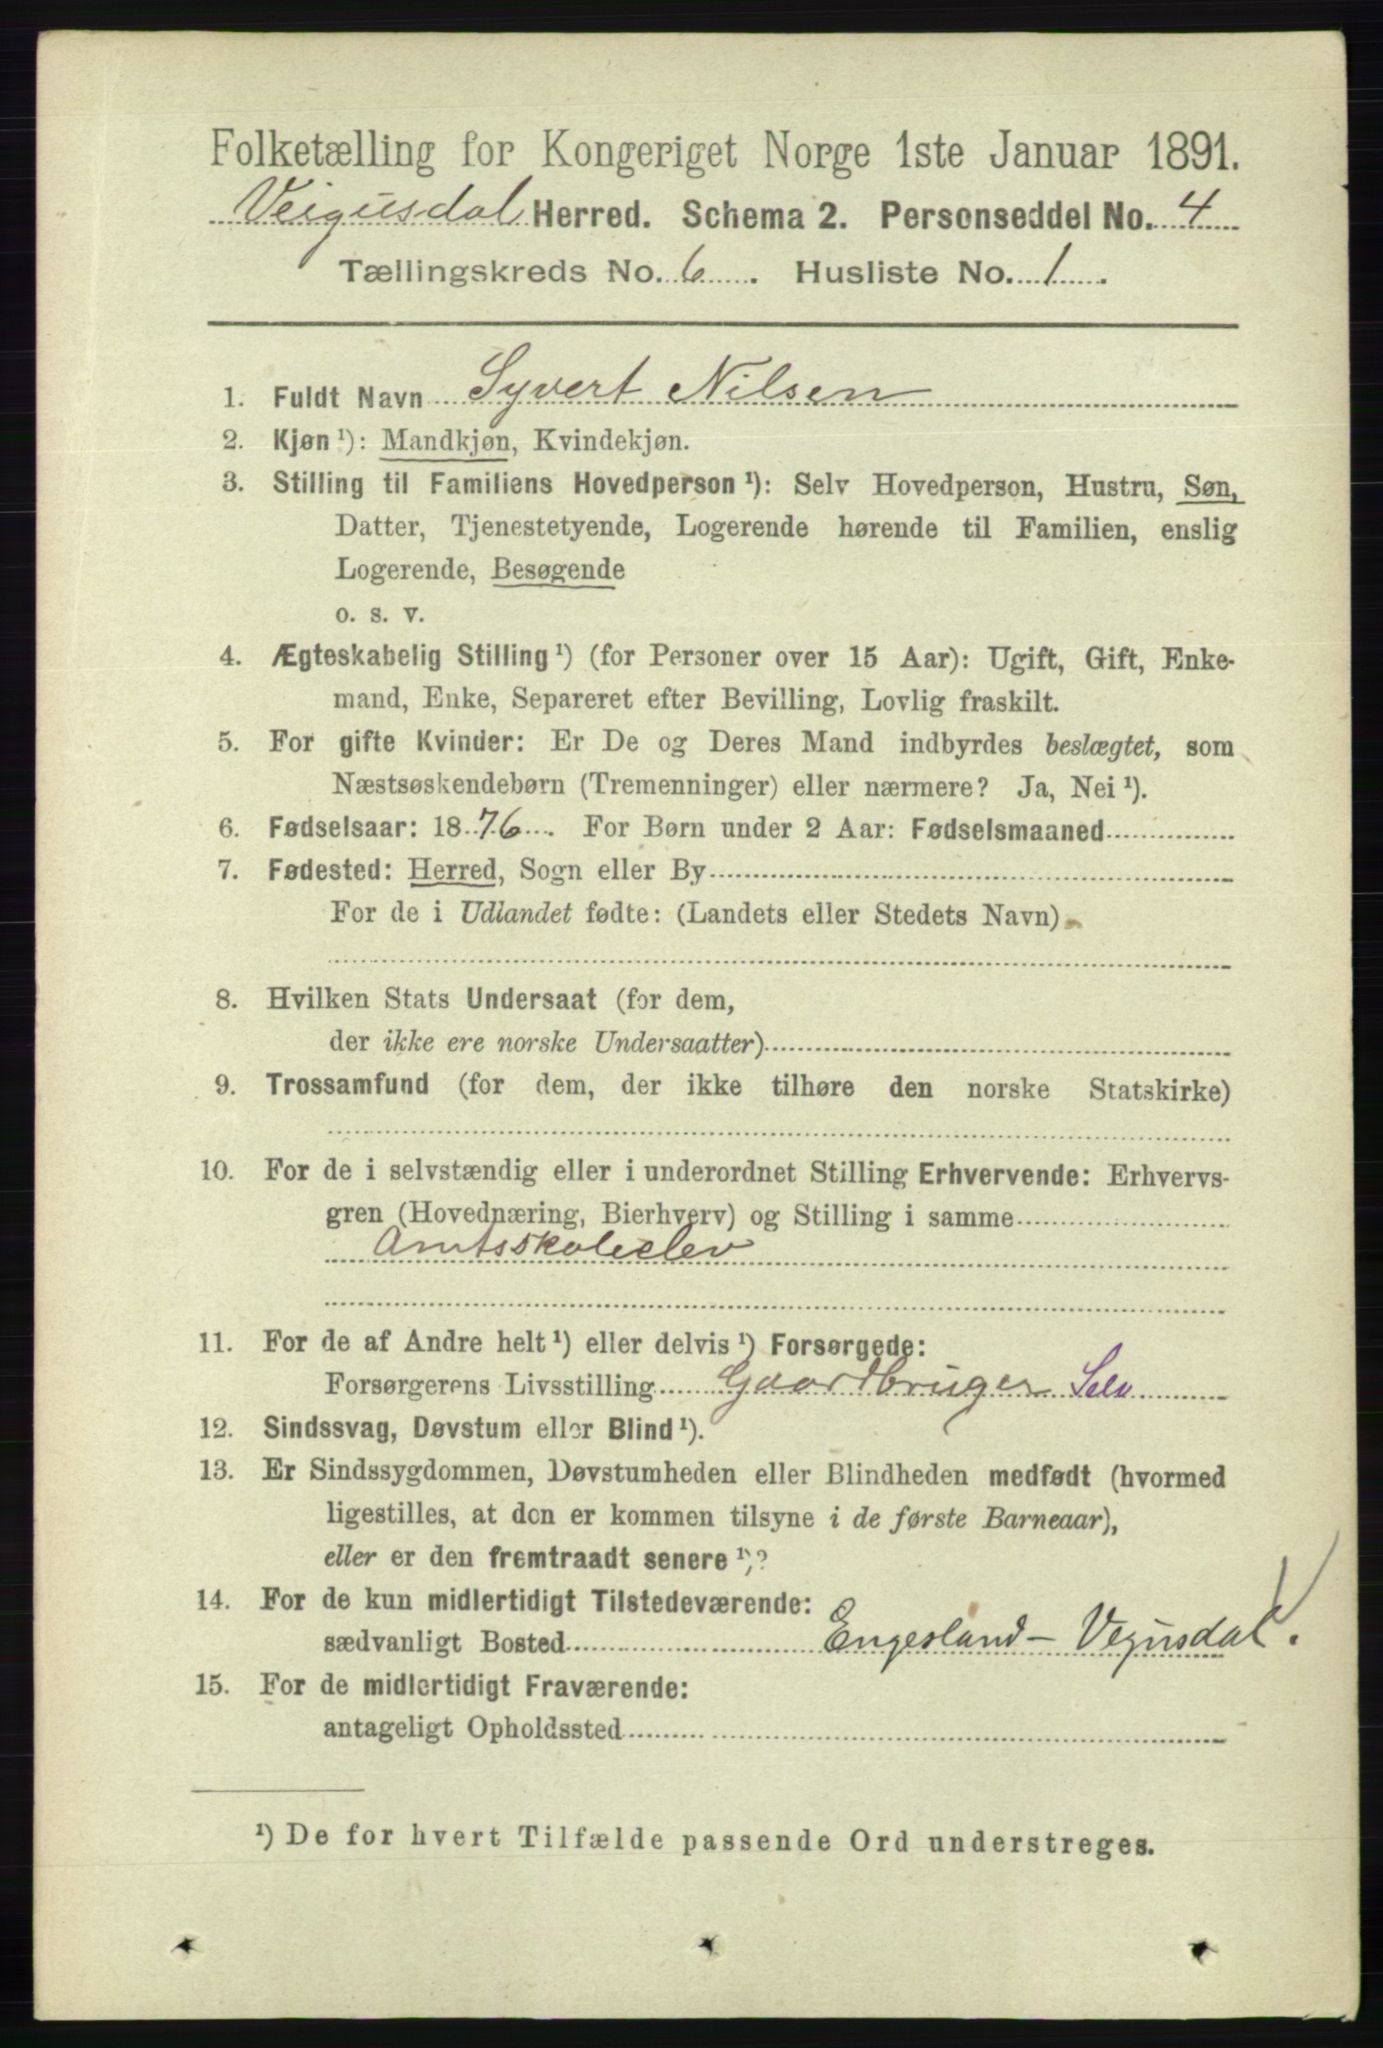 Folketælling for Kongeriget Norge 1ste Januar 1891.
Veigusdal Herred. Schema 2. Personseddel No. 4
Tællingskreds No. 6. Husliste No. 1.
1. Fuldt Navn Syvert Nilsen
2. Kjøn¹): Mandkjøn, Kvindekjøn.
3. Stilling til Familiens Hovedperson¹): Selv Hovedperson, Hustru, Søn,
Datter, Tjenestetyende, Logerende hørende til Familien, enslig
Logerende, Besøgende
o. s. v.
4. Ægteskabelig Stilling¹) (for Personer over 15 Aar): Ugift, Gift, Enke-
mand, Enke, Separeret efter Bevilling, Lovlig fraskilt.
5. For gifte Kvinder: Er De og Deres Mand indbyrdes beslægtet, som
Næstsøskendebørn (Tremenninger) eller nærmere? Ja, Nei¹).
6. Fødselsaar: 1876. For Børn under 2 Aar: Fødselsmaaned
7. Fødested: Herred, Sogn eller By
For de i Udlandet fødte: (Landets eller Stedets Navn)
8. Hvilken Stats Undersaat (for dem,
der ikke ere norske Undersaatter)
9. Trossamfund (for dem, der ikke tilhøre den norske Statskirke)
10. For de i selvstændig eller i underordnet Stilling Erhvervende: Erhvervs-
gren (Hovednæring, Bierhverv) og Stilling i samme
Amtsskoleelev
11. For de af Andre helt¹) eller delvis¹) Forsørgede:
Forsørgerens Livsstilling Gaardbruger Selv
12. Sindssvag, Døvstum eller Blind¹).
13. Er Sindssygdommen, Døvstumheden eller Blindheden medfødt (hvormed
ligestilles, at den er kommen tilsyne i de første Barneaar),
eller er den fremtraadt senere¹)?
14. For de kun midlertidigt Tilstedeværende:
sædvanligt Bosted Engesland - Vegusdal.
15. For de midlertidigt Fraværende:
antageligt Opholdssted
¹) De for hvert Tilfælde passende Ord understreges.